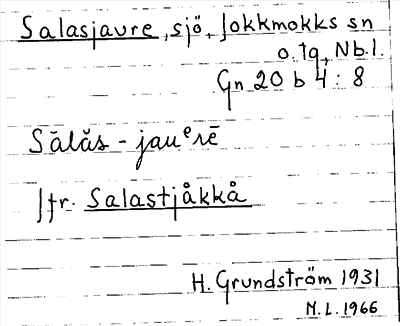 Salasjaure, sjö, Jokkmokks sn
o. tg, Nb.l.
Gn 20 b 4 : 8
Sālăs - jauᵉrē
Jfr. Salastjåkkå
H. Grundström 1931
M.L. 1966